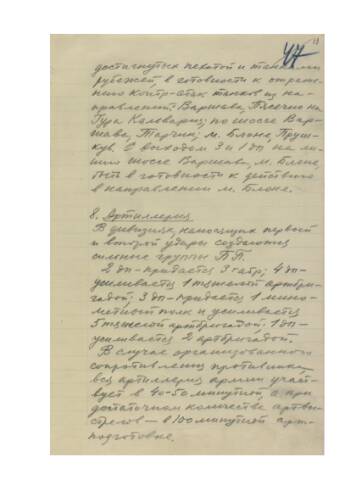 47
достигнутых пехотой и танками
рубежей, в готовности к отраже-
нию контр-атак танков из на-
правлений: Варшава, Пясечно на
Гура Кальвария; по шоссе Вар-
шава, Тарчин; м. Блоне Пруш-
кув. С выходом 3 и 1 дп на ли-
нию шоссе Варшава, м. Блоне,
быть в готовности к действию
в направлении м. Блоне.
8. Артиллерия
В дивизиях, наносящих первый
и второй удары создаются
сильные группы ПП.
2 дп - придается 3 габр; 4 дп -
усиливается 1 тяжелой артбри-
гадой; 3 дп - придается 1 мино-
метный полк и усиливается
5 тяжелой артбригадой. 1 дп -
усиливается 2 артбригадой.
В случае организованного
сопротивления противника,
вся артиллерия армии участ-
вует в 40-50 минутной, а при
достаточном количестве артвы-
стрелов - в 100 минутной арт-
подготовке.